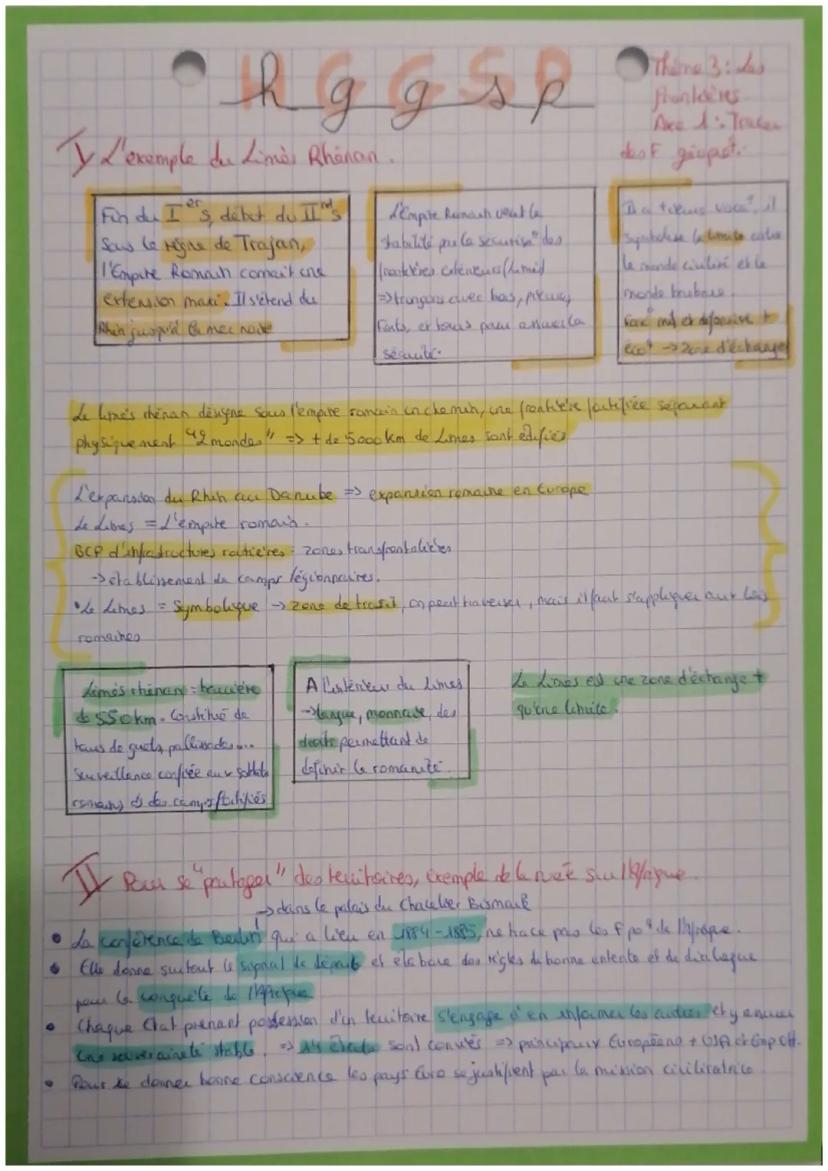 hggsp
Thème 3 : Les
frontières
Axe 1 : Tracer
des F géopol.
I L'exemple du Limès Rhénan.
Fin du Ier s, début du IInd s
Sous le règne de Trajan,
l'Empire Romain connait une
extension maxi. Il s'étend du
Rhin jusqu'à la mer noire
L'Empire Romain veut la
stabilité par la sécurisa° des
frontières extérieures (Limès)
=> tronçons avec bas, pieux,
forts, et tours pour assurer la
sécurité.
Il a +sieurs voca°, il
symbolise la limite entre
le monde civilisé et le
monde barbare.
Voca° mil et défensive +
éco° -> zone d'échange
Le limès rhénan désigne sous l'empire romain un chemin, une frontière fortifiée séparant
physiquement "2 mondes" => + de 5000 km de Limes sont édifiés
L'expansion du Rhin au Danube => expansion romaine en Europe
Le Limes = L'empire romain.
BCP d'infrastructures routières : zones transfrontalières
-> établissement de camps légionnaires.
• Le Limes = Symbolique -> zone de transit, on peut traverser, mais il faut s'appliquer aux lois
romaines
Limès rhénan = barrière
de 550 km. Constitué de
tours de guets, pallissades...
Surveillance confiée aux soldats
romains ds des camps fortifiés
A l'intérieur du Limes
-> langue, monnaie, des
droits permettant de
définir la romanité.
Le Limes est une zone d'échange +
qu'une limite.
II Pour se "partager" des territoires, exemple de la ruée sur l'Afrique.
-> dans le palais du Chancelier Bismark
• La conférence de Berlin qui a lieu en 1884-1885, ne trace pas les F po° de l'Afrique.
• Elle donne surtout le signal de départ et élabore des règles de bonne entente et de dialogue
pour la conquête de l'Afrique
• Chaque Etat prenant possession d'un territoire s'engage à en informer les autres et y assurer
une souveraineté stable. => 14 états sont conviés => principaux Européens + USA et Emp Ott.
• Pour se donner bonne conscience les pays Euro se justifient par la mission civilisatrice